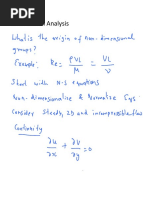 Analysis
What is the origin of non-dimensional
groups?
Example: Re = ρVL/μ = VL/ν
Start with N-S equations
Non-dimensionalize & Normalize Eqs.
Consider Steady, 2D and incompressible flows
Continuity
∂u/∂x + ∂v/∂y = 0